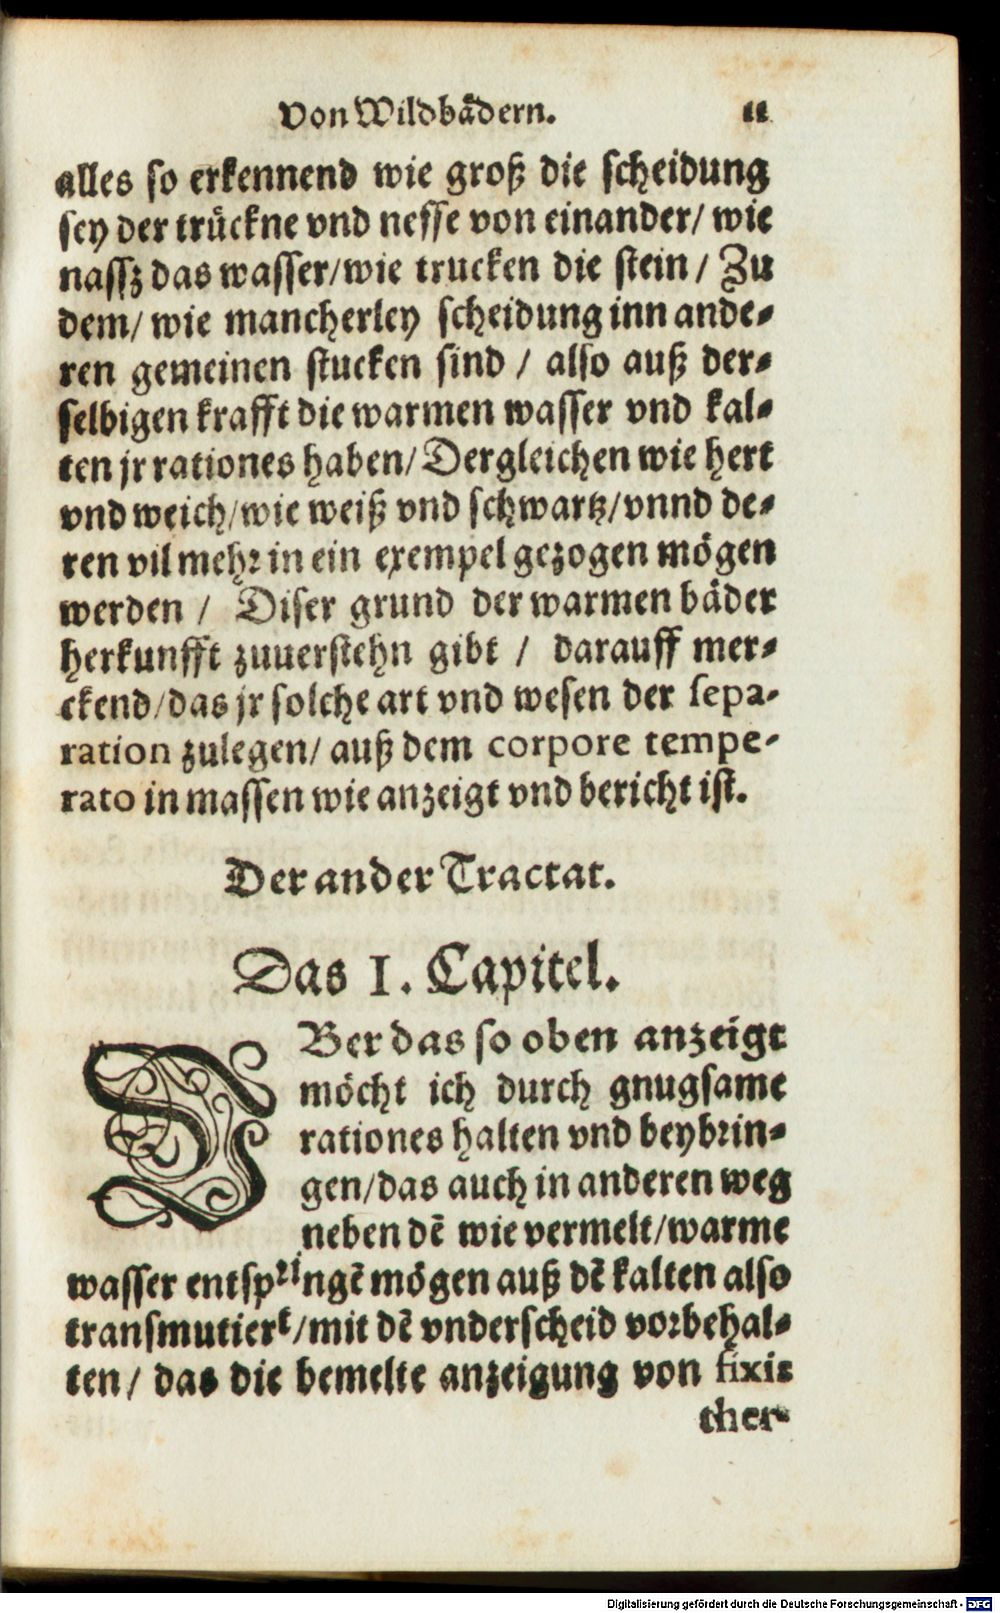 Von Wildbådern. 11
alles so erkennend wie groß die scheidung
sey der trůckne vnd nesse von einander/ wie
nassz das wasser/wie trucken die stein / Zu
dem/ wie mancherley scheidung inn ande-
ren gemeinen stucken sind / also auß der-
selbigen krafft die warmen wasser vnd kal-
ten jr rationes haben/ Dergleichen wie hert
vnd weich/wie weiß vnd schwartz/vnnd de-
ren vil mehr in ein exempel gezogen mögen
werden / Diser grund der warmen båder
herkunfft zuuerstehn gibt / darauff mer-
ckend/das jr solche art vnd wesen der sepa-
ration zulegen/ auß dem corpore tempe-
rato in massen wie anzeigt vnd bericht ist.
Der ander Tractat.
Das I. Capitel.
VBer das so oben anzeigt
möcht ich durch gnugsame
rationes halten vnd beybrin-
gen/das auch in anderen weg
neben dē wie vermelt/warme
wasser entspringē mögen auß dē kalten also
transmutiert/mit dē vnderscheid vorbehal-
ten/ das die bemelte anzeigung von fixi-
cher-
Digitalisierung gefördert durch die Deutsche Forschungsgemeinschaft - DFG